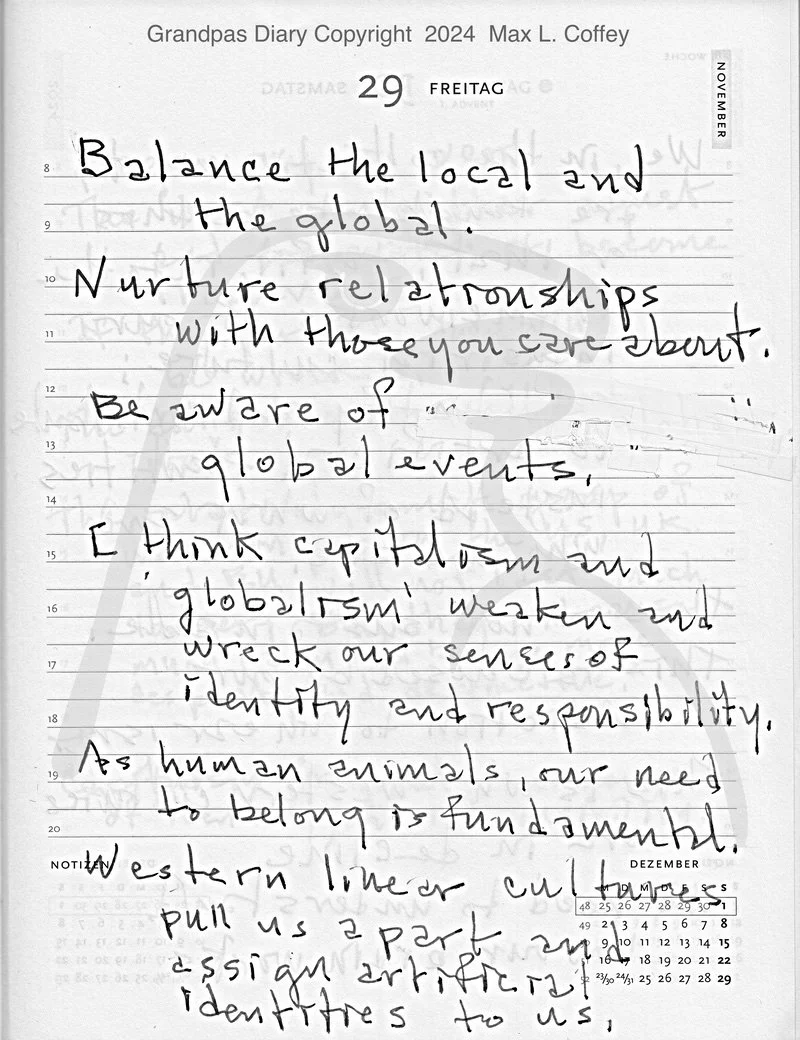 Grandpas Diary Copyright 2024 Max L. Coffey
29 FREITAG
NOVEMBER
8 Balance the local and
9 the global.
10 Nurture relationships
11 with those you care about.
12 Be aware of
13 global events.
14
15 I think capitalism and
16 'globalism' weaken and
17 wreck our senses of
18 identity and responsibility.
19 As human animals, our need
20 to belong is fundamental.
NOTIZEN
Western linear cultures
pull us a part and
assign artificial
identities to us.
DEZEMBER
M D M D F S S
48 25 26 27 28 29 30 1
49 2 3 4 5 6 7 8
9 10 11 12 13 14 15
16 17 18 19 20 21 22
52 23/30 24/31 25 26 27 28 29